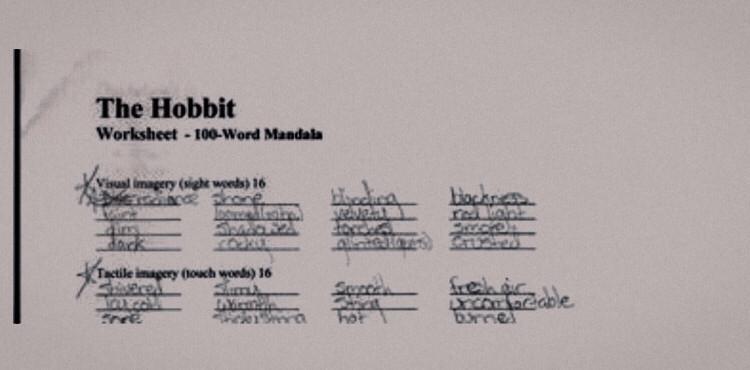 The Hobbit
Worksheet - 100-Word Mandala
Visual imagery (sight words) 16
radiance shone blinding blackness
faint velvety red light
dim torches smokey
dark rocky glinted crusted
Tactile imagery (touch words) 16
shivered slimy smooth fresh air
icy cold warmth sting uncomfortable
hot burned